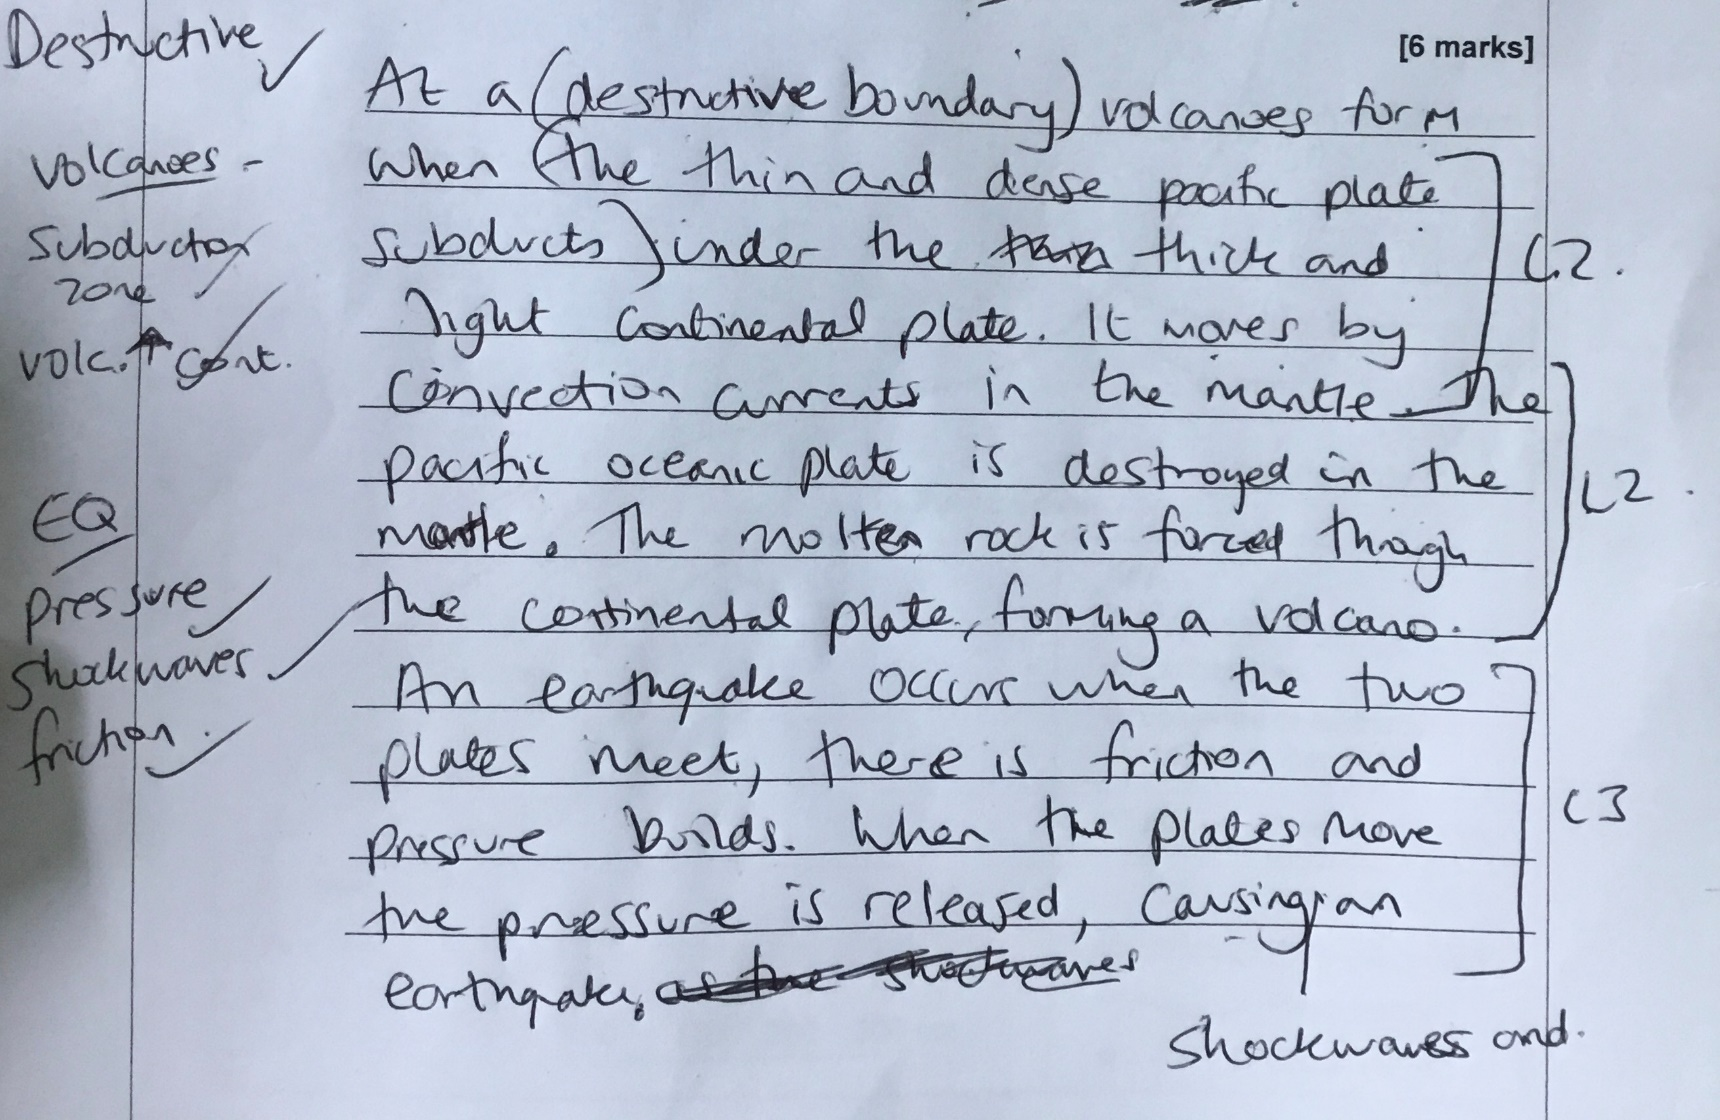 [6 marks]
Destructive
Volcanoes -
Subduction
zone
Volc. ↑ cont.
EQ
pressure
Shockwaves
friction.
At a (destructive boundary) volcanoes form
when (the thin and dense pacific plate
subducts) inder the thick and
light continental plate. It moves by
Convection currents in the mantle. The
pacific oceanic plate is destroyed in the
mantle. The molten rock is forced though
the continental plate, forming a volcano.
An earthquake occurs when the two
plates meet, there is friction and
pressure builds. When the plates move
the pressure is released, causing an
earthquake. as the shockwaves
Shockwaves and.
L2.
L2.
L3